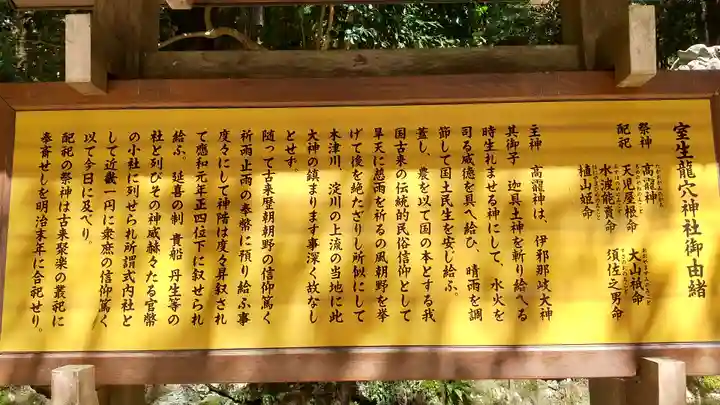 室生龍穴神社御由緒
祭神 高龗神
配祀 天児屋根命 大山祇命
水波能賣命 須佐之男命
埴山姫命
主神 高龗神は、伊邪那岐大神
其御子 迦具土神を斬り給へる
時生れませる神にして、水火を
司る威徳を具へ給ひ、晴雨を調
節して国土民生を安じ給ふ。
蓋し、農を以て国の本とする我
国古来の伝統的民俗信仰として
旱天に慈雨を祈るの風朝野を挙
げて後を絶たざりし所似にして
木津川、淀川の上流の当地に此
大神の鎮まります事深く故なし
とせず。
随って古来歴朝朝野の信仰篤く
祈雨止雨の奉幣に預り給ふ事
度々にして神階は度々昇叙され
て應和元年正四位下に叙せられ
給ふ。延喜の制 貴船 丹生等の
社と列びその神威赫々たる官幣
の小社に列せられ所謂式内社と
して近畿一円に衆庶の信仰篤く
以て今日に及べり。
配祀の祭神は古来聚楽の叢祀に
奉斎せしを明治末年に合祀せり。